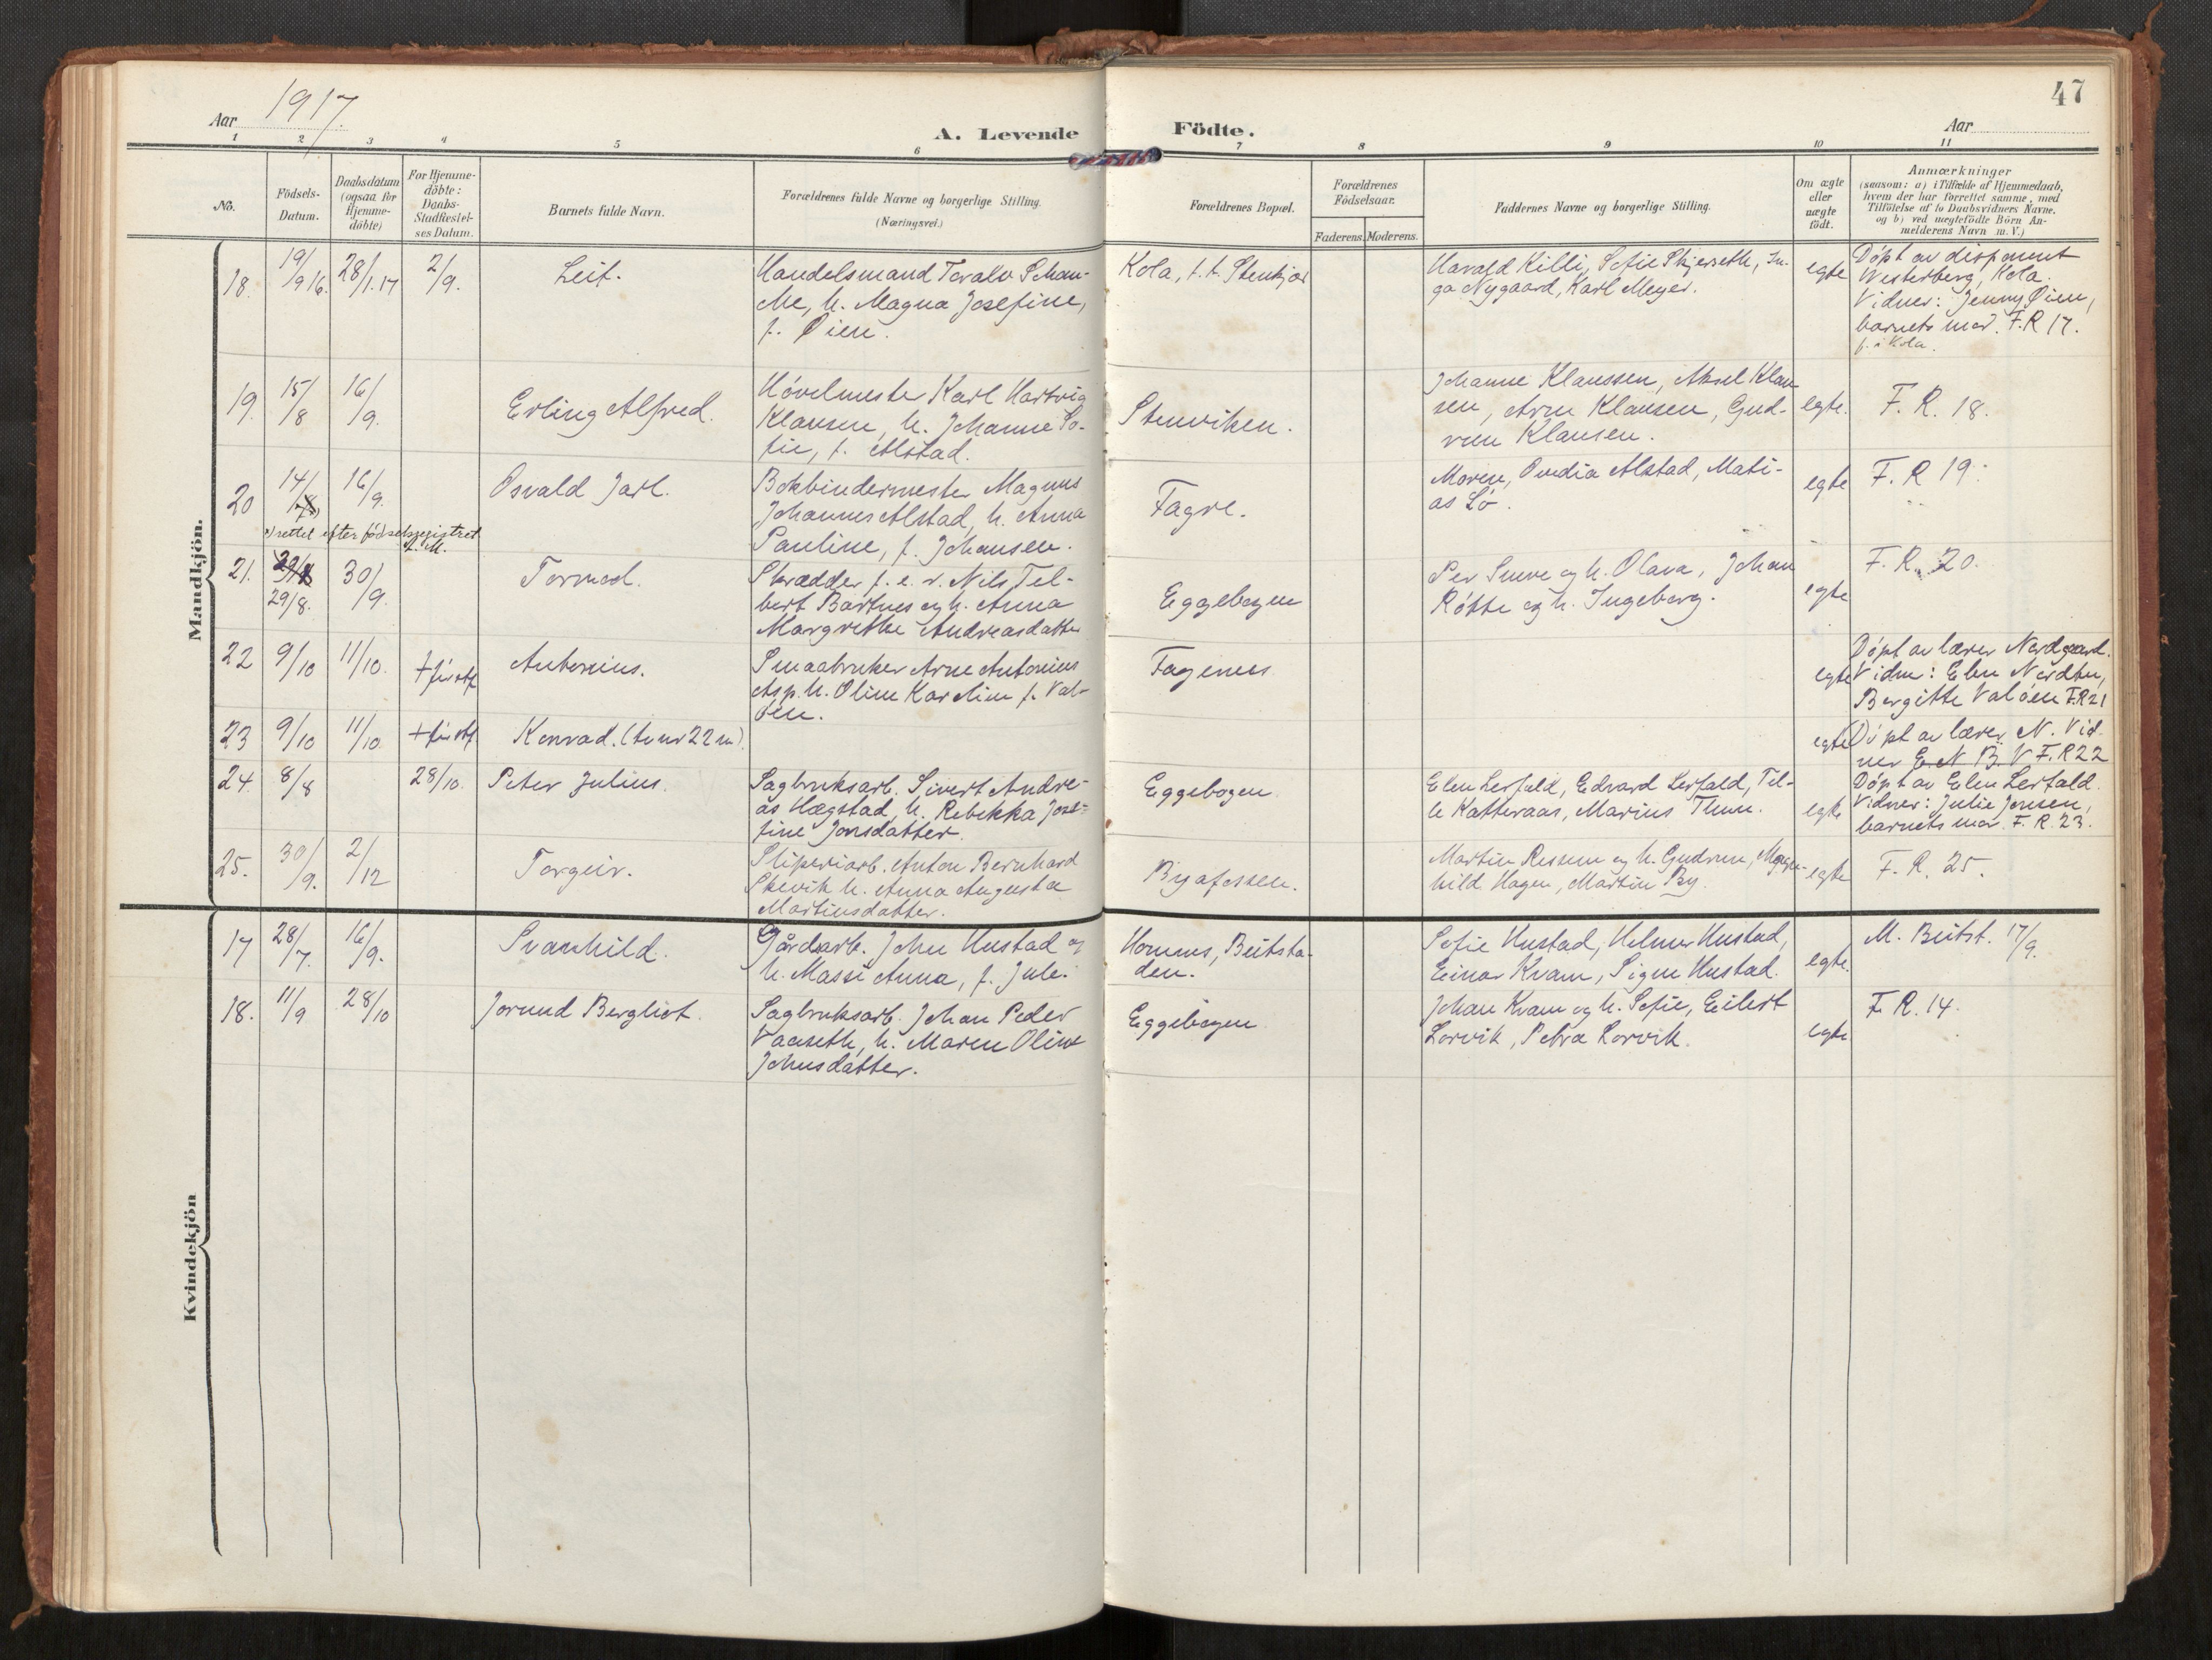 47
Aar 1917.
A. Levende Födte.
Aar
1 2 3 4 5 6 7 8 9 10 11
No.
Födsels-
Datum.
Daabsdatum
(ogsaa for
Hjemme-
döbte)
For Hjemme-
döbte:
Daabs-
Stadfæstel-
ses Datum.
Barnets fulde Navn.
Forældrenes fulde Navne og borgerlige Stilling.
(Næringsvei.)
Forældrenes Bopæl.
Forældrenes
Födselsaar.
Faderens. Moderens.
Faddernes Navne og borgerlige Stilling.
Om ægte
eller
uægte
födt.
Anmærkninger
(saasom: a) i Tilfælde af Hjemmedaab,
hvem der har forrettet samme, med
Tilföielse af to Daabsvidners Navne,
og b) ved uægtefödte Börn An-
melderens Navn m. V.)
Mandkjön.
18. 19/9 16. 28/1.17 2/9. Leif.
Handelsmand Toralv Schan-
che, h. Magna Josefine,
f. Øien.
Kola, f. t. Stenkjær
Harald Killi, Sofie Skjerseth, In-
ga Nygaard, Karl Meyer.
egte
Döpt av disponent
Westerberg, Kola.
Vidner: Jenny Øien,
barnets mor. F. R 17.
f. i Kola.
19. 15/8 16/9. Erling Alfred.
Hövelmester Karl Hartvig
Klausen, h. Johanne So-
fie, f. Alstad.
Stenviken.
Johanne Klaussen, Aksel Klau-
sen, Arne Klausen, Gud-
run Klausen.
egte.
F. R. 18.
20 14/8 16/9. Osvald Jarl.
x) rettet efter födselsregistret
A. M.
Bokbindermester Magnus
Johannes Alstad, h. Anna
Pauline, f. Johansen.
Fagre.
Moren, Ovedia Alstad, Mati-
as Lö.
egte
F. R 19.
21. 29/8. 30/9. Tormod.
Skrædder f. e. v. Nils Tel-
bert Bartnes og h. Anna
Margrethe Andreasdatter
Eggebogen
Per Sneve og h. Olava, Johan
Röhte og h. Ingeborg.
egte
F. R. 20.
22 9/10 11/10. + før stf Antonius.
Smaabruker Arne Antonius
Asp. h. Oline Karoline f. Val-
öen.
Fagernes
egte
Döpt av lærer Nordgaard.
Vidn: Elen Nordhu,
Bergitte Valöen F.R 21
23 9/10 11/10 + før stf Konrad. (tv nr 22 n).
egte
Döpt av lærer N. Vid-
ner E. N. B. V F. R 22
24. 8/8 28/10. Peter Julius.
Sagbruksarb. Sivert Andre-
as Hægstad, h. Rebekka Jose-
fine Jonsdatter.
Eggebogen
Elen Lerfald, Edvard Lerfald, Til-
le Katteraas, Marius Thun.
egte
Döpt av Elen Lerfald.
Vidner: Julie Jonsen,
barnets mor. F. R. 23.
25. 30/9. 2/12 Torgeir.
Sliperiarb. Anton Bernhard
Skevik h. Anna Augusta
Martinsdatter.
Byafossen.
Martin Ressem og h. Gudrun, Magn-
hild Hagen, Martin By.
egte
F. R. 25.
Kvindekjön
17 28/7. 16/9. Svanhild.
Gårdsarb. John Hustad og
h. Massi Anna, f. Jule.
Homnes, Beitsta-
den.
Sofie Hustad, Helmer Hustad,
Einar Kvam, Signe Hustad.
egte.
M. Beitst. 17/9.
18. 11/9 28/10 Jorund Bergliot.
Sagbruksarb. Johan Peder
Vaaseth, h. Maren Oline
Johnsdatter.
Eggebogen
Johan Kvam og h. Sofie, Eilert
Lorvik, Petra Lorvik.
egte
F. R. 14.